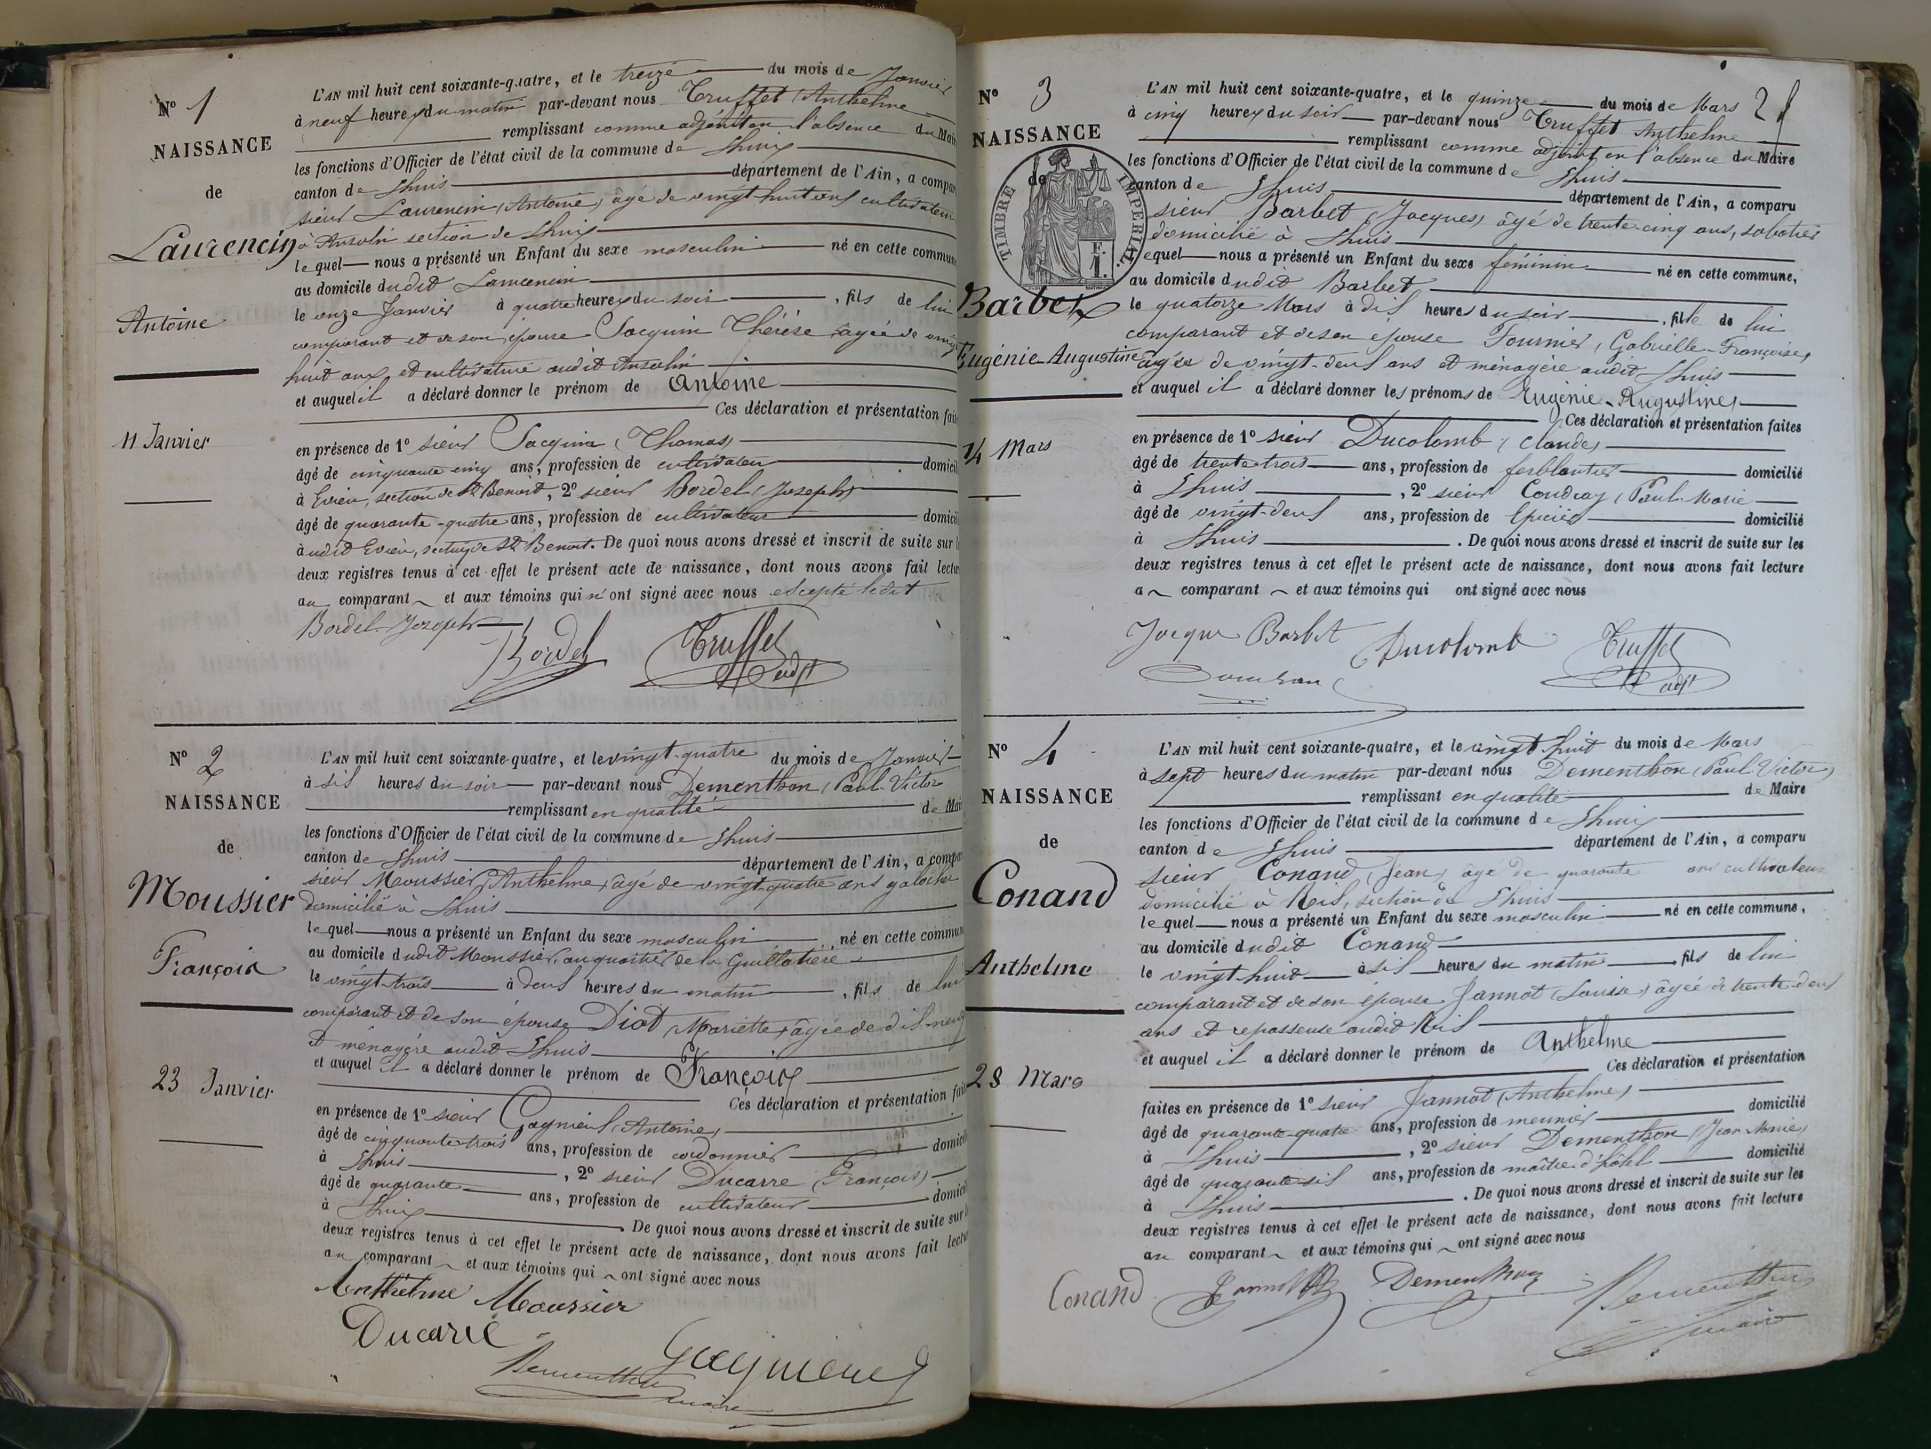 N° 1
NAISSANCE
de
Laurencin
Antoine
11 Janvier
L'AN mil huit cent soixante-quatre, et le treize du mois de Janvier
à neuf heures du matin par-devant nous Truffet (Anthelme
remplissant comme adjoint en l'absence du Mair
les fonctions d'Officier de l'état civil de la commune de Lhuis
canton de Lhuis département de l'Ain, a compar
sieur Laurencin (Antoine) âgé de vingt huit ans cultivateur
à Ansolin section de Lhuis
lequel nous a présenté un Enfant du sexe masculin né en cette commune
au domicile dudit Laurencin
le onze Janvier à quatre heures du soir , fils de lui
comparant et de son épouse Jacquin Thérèse âgée de vingt
huit ans et cultivatrice audit Ansolin
et auquel il a déclaré donner le prénom de Antoine
Ces déclaration et présentation fait
en présence de 1° sieur Jacquin (Thomas)
âgé de cinquante cinq ans, profession de cultivateur domicil
à Evieu, section de St Benoit, 2° sieur Bordel (Joseph)
âgé de quarante-quatre ans, profession de cultivateur domicil
à audit Evieu, section de St Benoit. De quoi nous avons dressé et inscrit de suite sur l
deux registres tenus à cet effet le présent acte de naissance, dont nous avons fait lectur
au comparant et aux témoins qui n'ont signé avec nous excepté ledit
Bordel Joseph
Bordel Truffet
adjt
N° 2
NAISSANCE
de
Moussier
François
23 Janvier
L'AN mil huit cent soixante-quatre, et le vingt-quatre du mois de Janvier
à six heures du soir par-devant nous Dementhon (Paul-Victor
remplissant en qualité de Mair
les fonctions d'Officier de l'état civil de la commune de Lhuis
canton de Lhuis département de l'Ain, a compar
sieur Moussier (Anthelme) âgé de vingt-quatre ans galocher
domicilié à Lhuis
lequel nous a présenté un Enfant du sexe masculin né en cette commun
au domicile dudit Moussier, au quartier de la Guillotière
le vingt-trois à deux heures du matin , fils de lui
comparant et de son épouse Diot (Mariette) âgée de dix-neuf
et ménagère audit Lhuis
et auquel il a déclaré donner le prénom de François
Ces déclaration et présentation fait
en présence de 1° sieur Gagnieux (Antoine)
âgé de cinquante trois ans, profession de cordonnier domicil
à Lhuis , 2° sieur Ducarre (François)
âgé de quarante ans, profession de cultivateur domicil
à Lhuis . De quoi nous avons dressé et inscrit de suite sur l
deux registres tenus à cet effet le présent acte de naissance, dont nous avons fait lectu
au comparant et aux témoins qui ont signé avec nous
Anthelme Moussier
Ducarre
Dementhon Gagnieux
maire
N° 3
NAISSANCE
de
TIMBRE IMPERIAL
F.
1.
Barbet
Eugénie-Augustine
14 Mars
L'AN mil huit cent soixante-quatre, et le quinze du mois de Mars 2
à cinq heures du soir par-devant nous Truffet Anthelme
remplissant comme adjoint en l'absence du Maire
les fonctions d'Officier de l'état civil de la commune de Lhuis
canton de Lhuis département de l'Ain, a comparu
sieur Barbet (Jacques) âgé de trente-cinq ans, sabotier
domicilié à Lhuis
lequel nous a présenté un Enfant du sexe féminin né en cette commune,
au domicile dudit Barbet
le quatorze Mars à dix heures du soir , fille de lui
comparant et de son épouse Fournier (Gabrielle-Françoise)
âgée de vingt-deux ans et ménagère audit Lhuis
et auquel il a déclaré donner les prénoms de Eugénie-Augustine
Ces déclaration et présentation faites
en présence de 1° sieur Ducolomb (Claude)
âgé de trente-trois ans, profession de ferblantier domicilié
à Lhuis , 2° sieur Coudray (Paul-Marie
âgé de vingt-deux ans, profession de Epicier domicilié
à Lhuis . De quoi nous avons dressé et inscrit de suite sur les
deux registres tenus à cet effet le présent acte de naissance, dont nous avons fait lecture
au comparant et aux témoins qui ont signé avec nous
Jacque Barbet Ducolomb Truffet
adjt
N° 4
NAISSANCE
de
Conand
Anthelme
28 Mars
L'AN mil huit cent soixante-quatre, et le vingt huit du mois de Mars
à sept heures du matin par-devant nous Dementhon (Paul-Victor)
remplissant en qualité de Maire
les fonctions d'Officier de l'état civil de la commune de Lhuis
canton de Lhuis département de l'Ain, a comparu
sieur Conand (Jean) âgé de quarante ans cultivateur
domicilié à Rix, section de Lhuis
lequel nous a présenté un Enfant du sexe masculin né en cette commune,
au domicile dudit Conand
le vingt huit à six heures du matin , fils de lui
comparant et de son épouse Jannot (Louise) âgée de trente-deux
ans et repasseuse audit Rix
et auquel il a déclaré donner le prénom de Anthelme
Ces déclaration et présentation
faites en présence de 1° sieur Jannot (Anthelme)
âgé de quarante-quatre ans, profession de meunier domicilié
à Lhuis , 2° sieur Dementhon (Jean Marie)
âgé de quarante-six ans, profession de maître d'hôtel domicilié
à Lhuis . De quoi nous avons dressé et inscrit de suite sur les
deux registres tenus à cet effet le présent acte de naissance, dont nous avons fait lecture
au comparant et aux témoins qui ont signé avec nous
Conand Jannot Dementhon Dementhon
maire